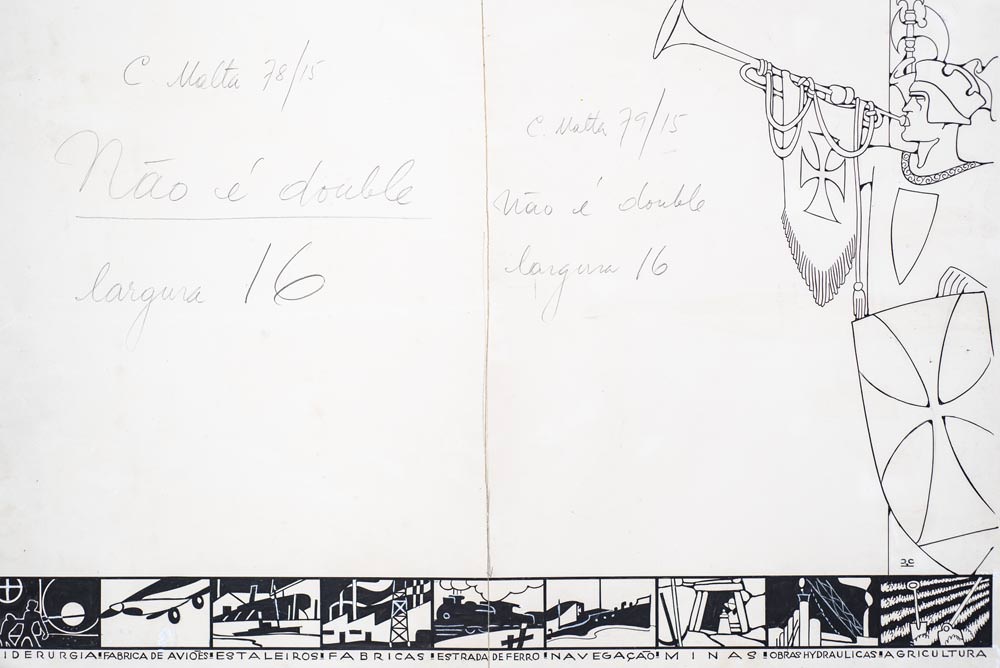 C. Malta 78/15
Não é double
largura 16
C. Malta 79/15
Não é double
largura 16
IDERURGIA FABRICA DE AVIÕES ESTALEIROS FABRICAS ESTRADA DE FERRO NAVEGAÇÃO MINAS OBRAS HYDRAULICAS AGRICULTURA